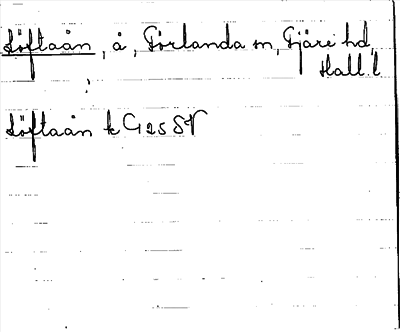 Löftaån, å, Förlanda sn, Fjäre hd,
Hall. l
Löftaån k G 25 SV